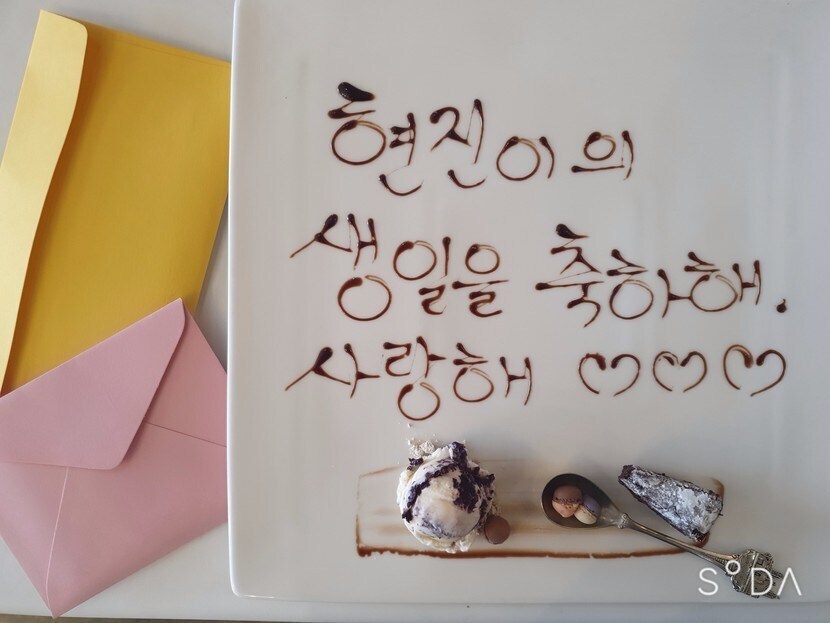 현진이의
생일을 축하해.
사랑해 ♡♡♡
SODA